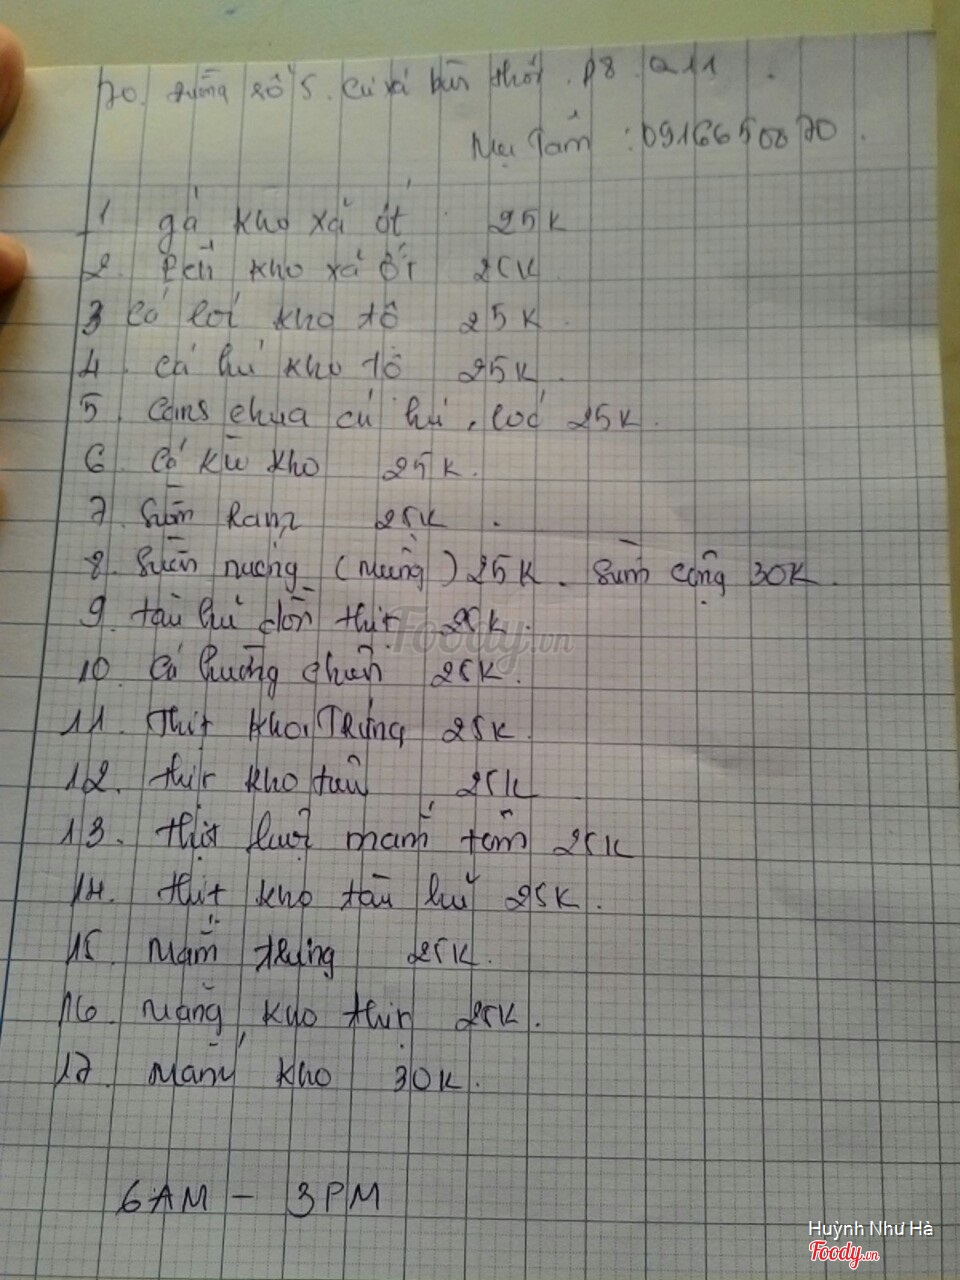 70. đường số 5. cư xá bình thới. P8. Q11.
Mẹ Tấm : 0916650070.
1 gà kho xả ớt 25K
2. ếch kho xả ớt 25K
3 cá lóc kho tộ 25K.
4. cá hú kho tộ 25K.
5. canh chua cá hú, lóc 25K.
6. cá kèo kho 25K.
7. Sườn Ram 25K.
8. Sườn nướng (miếng) 25K. Sườn cộng 30K.
9. tàu hủ dồn thịt 25K.
10. cá hường chiên 25K.
11. thịt kho Trứng 25K.
12. thịt kho tiêu 25K
13. thịt luộc mắm tôm 25K
14. thịt kho tàu hủ 25K.
15. Mắm trưng 25K.
16. măng kho thịt 25K.
17. Mắm kho 30K.
6AM - 3PM
Foody.vn
Huỳnh Như Hà
Foody.vn